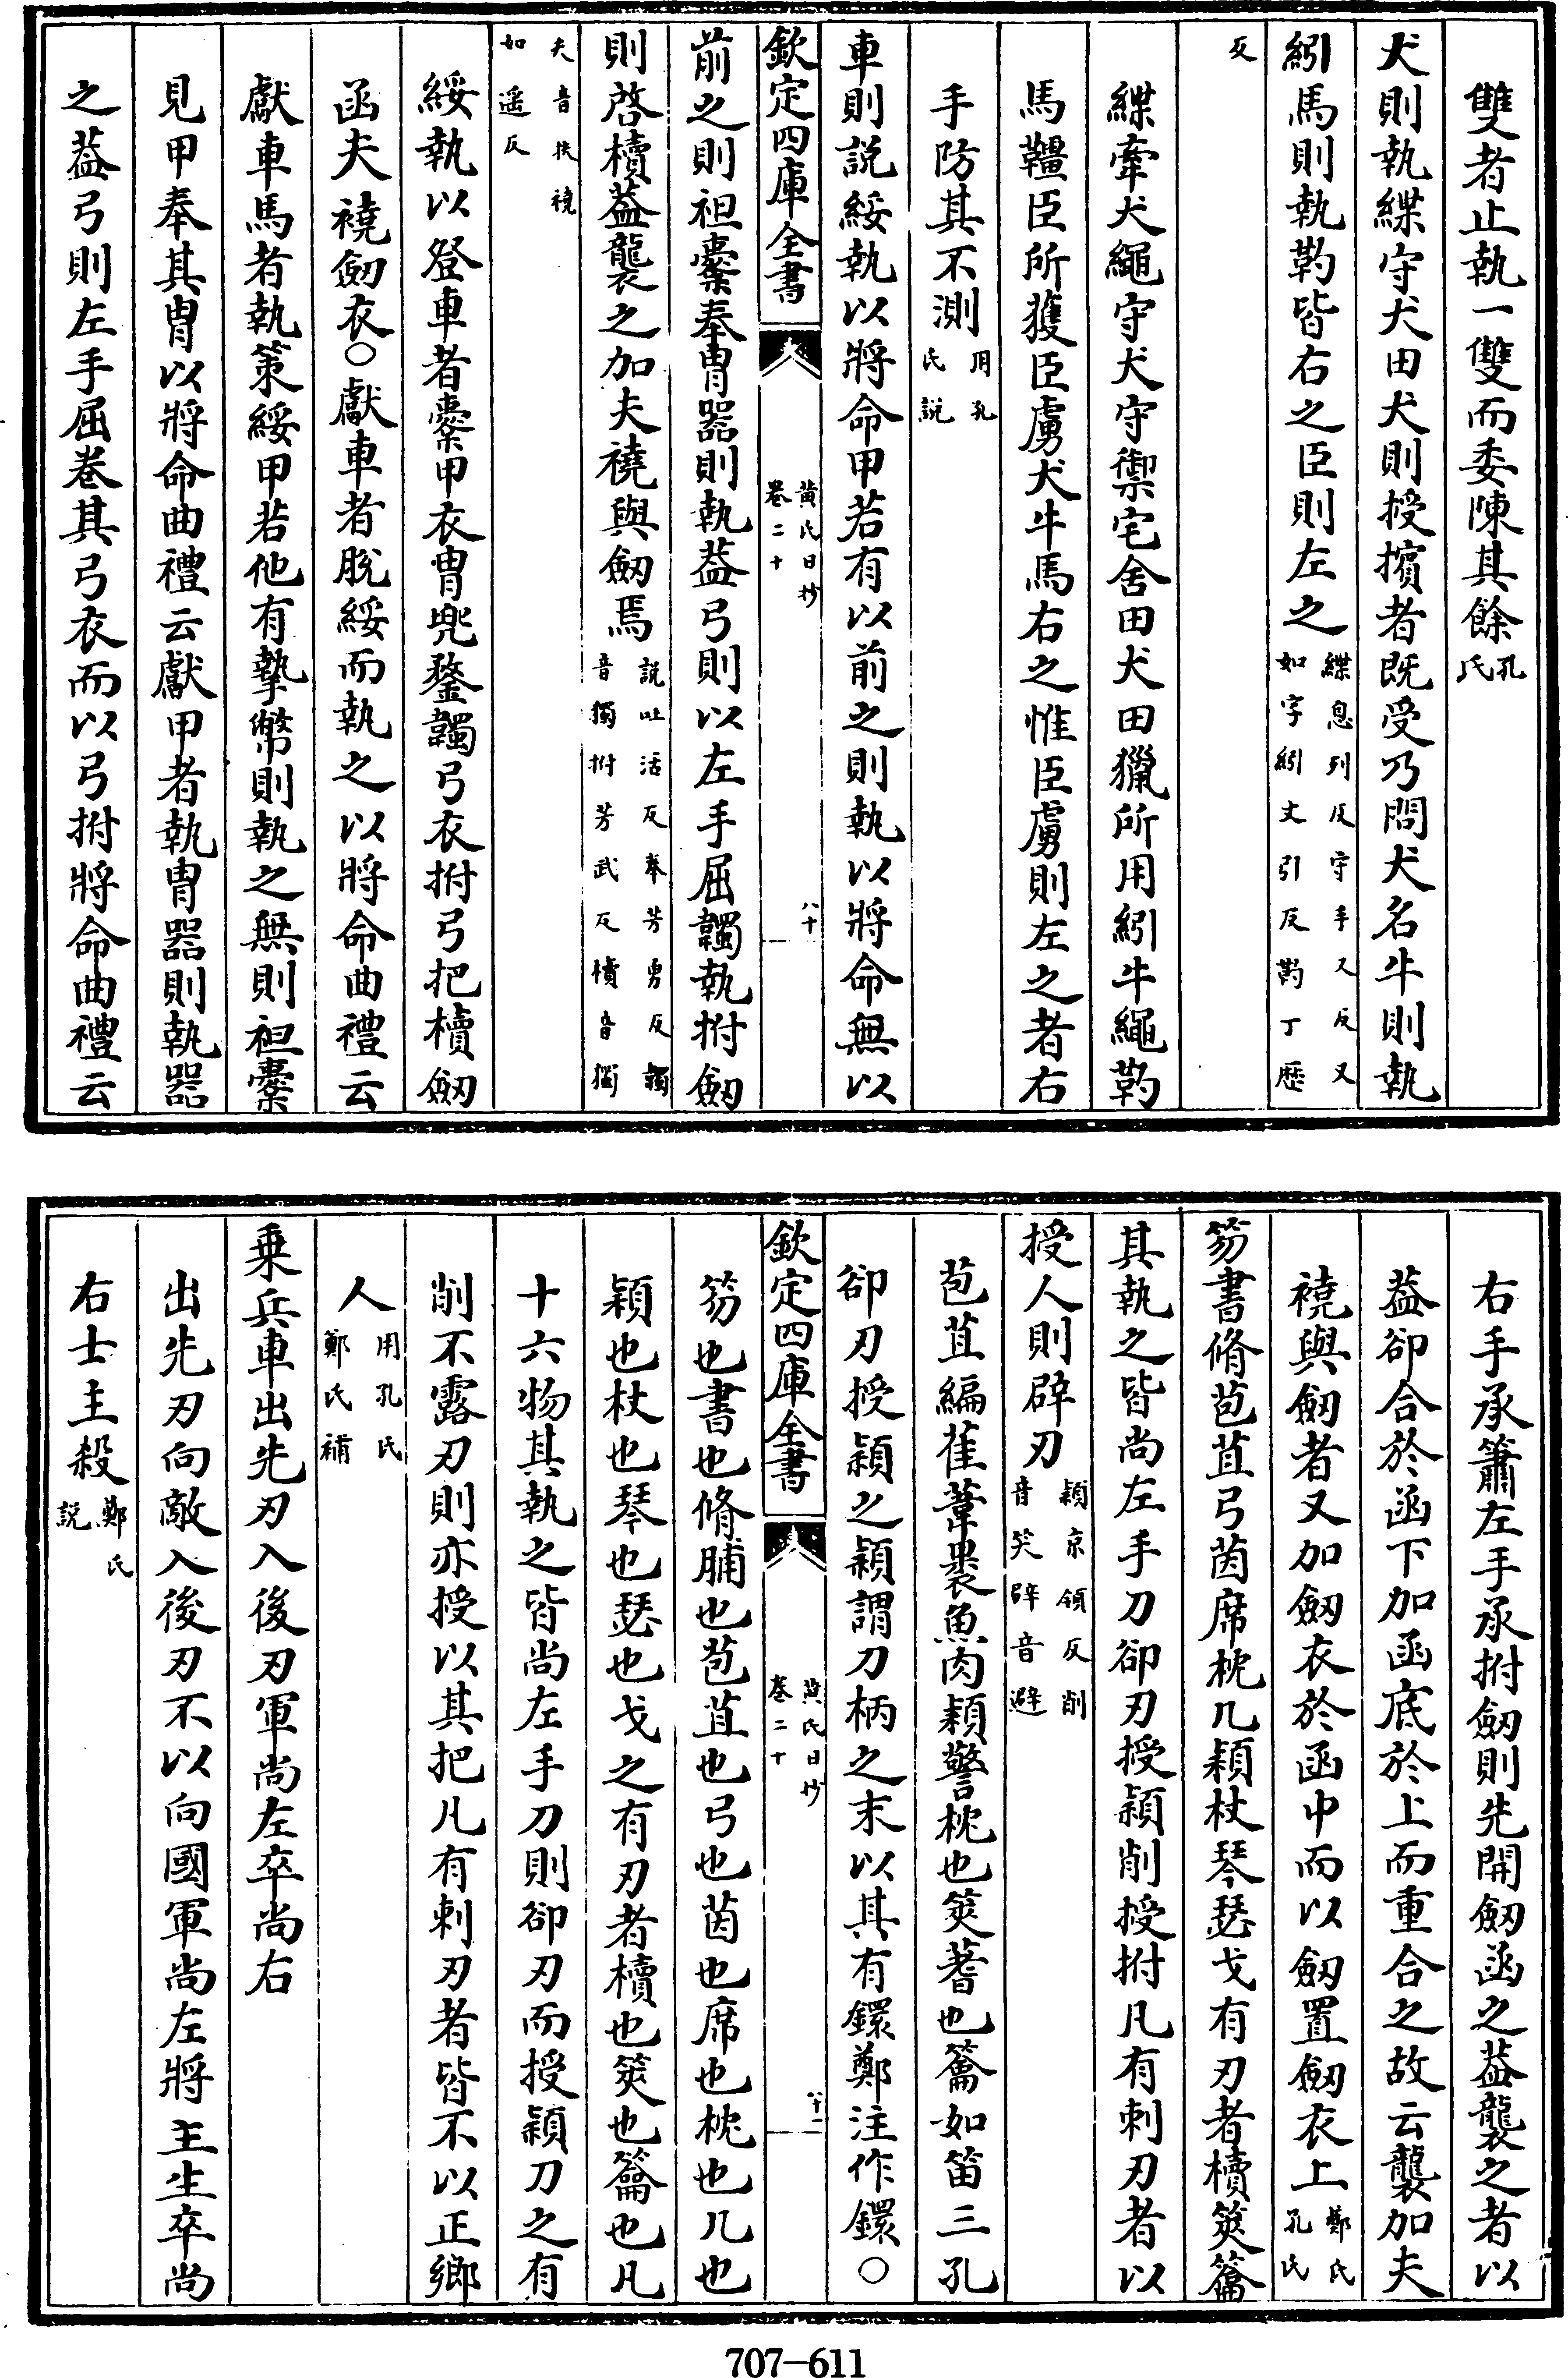 雙者止執一雙而委陳其餘孔氏
犬則執緤守犬田犬則授擯者既受乃問犬名牛則執
紖馬則執靮皆右之臣則左之緤息列反守手又反又如字紖丈引反靮丁歷
反
緤牽犬繩守犬守禦宅舍田犬田獵所用紖牛繩靮
馬韁臣所獲臣虜犬牛馬右之惟臣虜則左之者右
手防其不測用孔氏說
車則說綏執以將命甲若有以前之則執以將命無以
欽定四庫全書 黃氏日抄卷二十 八十
前之則袒櫜奉胄器則執蓋弓則以左手屈韣執拊劒
則啓櫝蓋襲之加夫襓與劒焉說吐活反奉芳勇反韣音獨拊芳武反櫝音獨
夫音扶襓如遥反
綏執以登車者櫜甲衣胄兠鍪韣弓衣拊弓把櫝劒
函夫襓劒衣○獻車者脫綏而執之以將命曲禮云
獻車馬者執策綏甲若他有摯幣則執之無則袒櫜
見甲奉其胄以將命曲禮云獻甲者執胄器則執器
之蓋弓則左手屈卷其弓衣而以弓拊將命曲禮云
右手承簫左手承拊劒則先開劒函之蓋襲之者以
蓋卻合於函下加函底於上而重合之故云襲加夫
襓與劒者又加劒衣於函中而以劒置劒衣上鄭氏孔氏
笏書脩苞苴弓茵席枕几頴杖琴瑟戈有刃者櫝筴籥
其執之皆尚左手刀卻刃授頴削授拊凡有刺刃者以
授人則辟刃頴京領反削音笑辟音避
苞苴編萑葦褁魚肉頴警枕也筴蓍也籥如笛三孔
卻刃授頴之頴謂刀柄之末以其有鐶鄭注作鐶○
欽定四庫全書 黃氏日抄卷二十 八十一
笏也書也脩脯也苞苴也弓也茵也席也枕也几也
頴也杖也琴也瑟也戈之有刃者櫝也筴也籥也凡
十六物其執之皆尚左手刀則卻刃而授頴刀之有
削不露刃則亦授以其把凡有刺刃者皆不以正鄉
人用孔氏鄭氏補
乗兵車出先刃入後刃軍尚左卒尚右
出先刃向敵入後刃不以向國軍尚左將主生卒尚
右士主殺鄭氏說
707-611